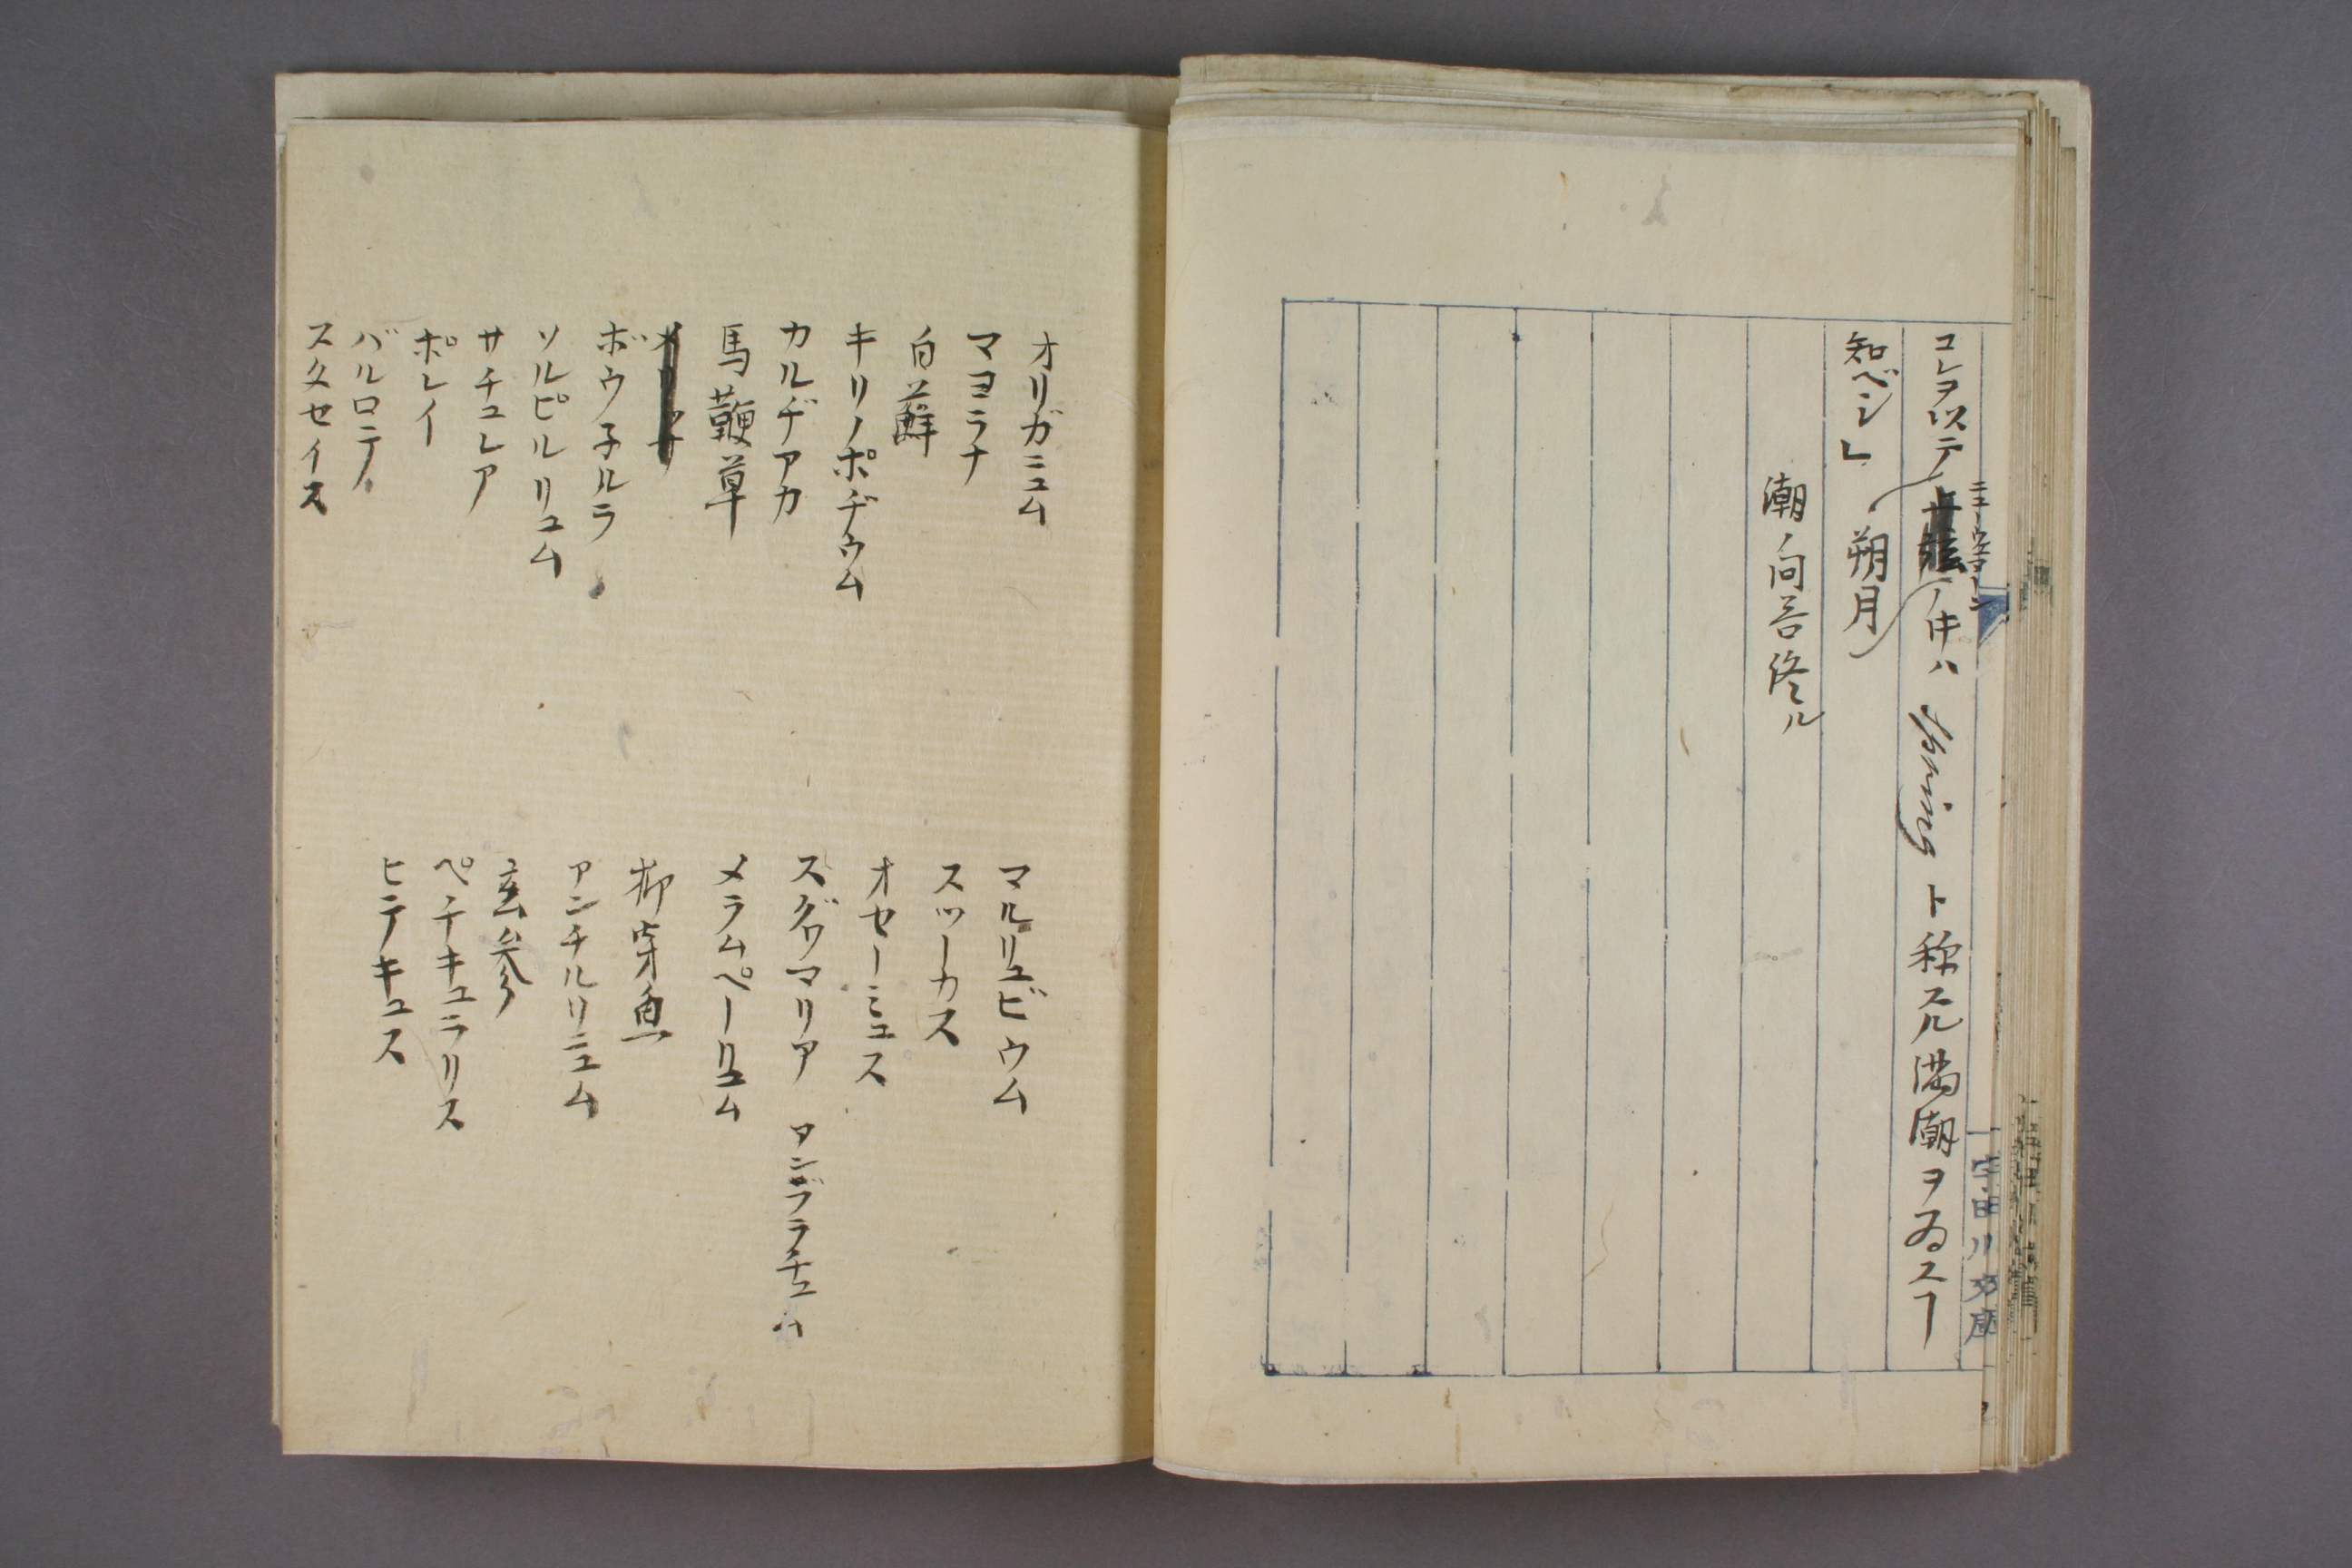 コレヲ以テノ中ハ spring ト称スル満潮ヲ為スヿ
ニューウェマーン
知ベシ」朔月
潮ノ向答終ル
宇田川
オリガニュム
マヨラナ
白蘚
キリノポヂウム
カルヂアカ
馬鞭草
ボウ子ルラ
ソルピルリュム
サチュレア
ポレイ
バルロテ
スタセイス
マルリュビウム
スツーカス
オセーミュス
スグリマリア アンブラチュム
メラムペーリュム
柳穿魚
アンチルリニュム
玄参
ペチキュラリス
ヒテキュス